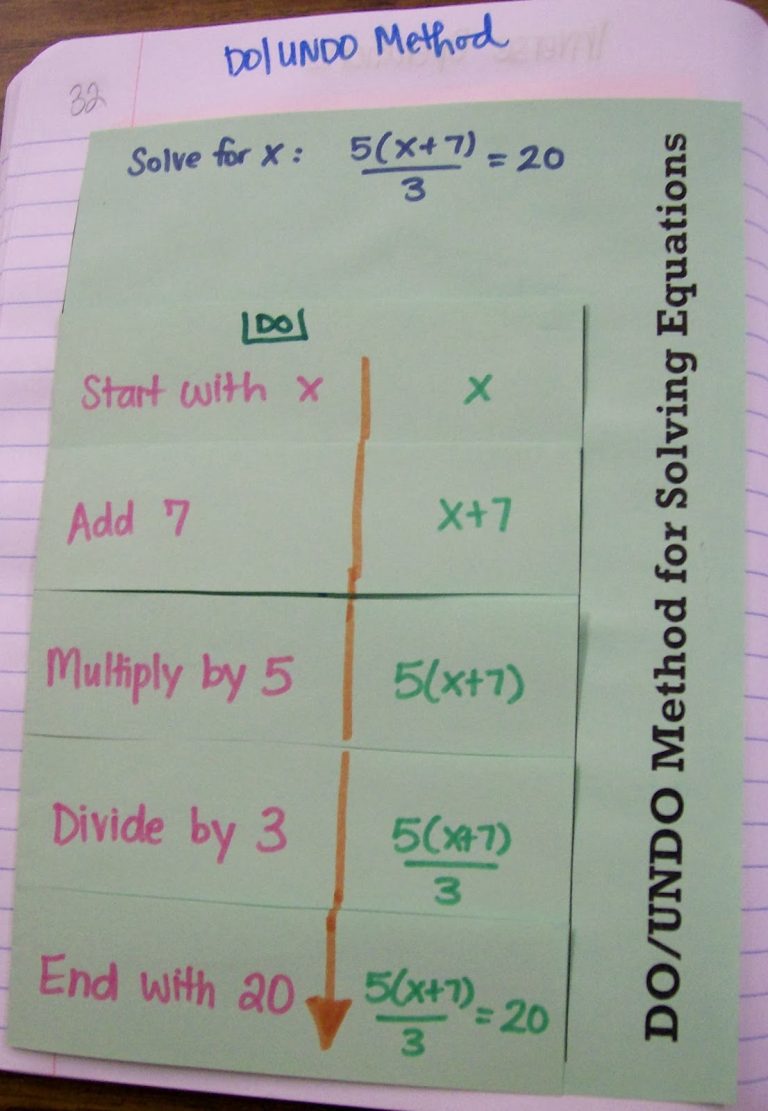 DO/UNDO Method
32
Solve for x: 5(x+7)/3 = 20
DO
Start with x | x
Add 7 | x+7
Multiply by 5 | 5(x+7)
Divide by 3 | 5(x+7)/3
End with 20 | 5(x+7)/3 = 20
DO/UNDO Method for Solving Equations